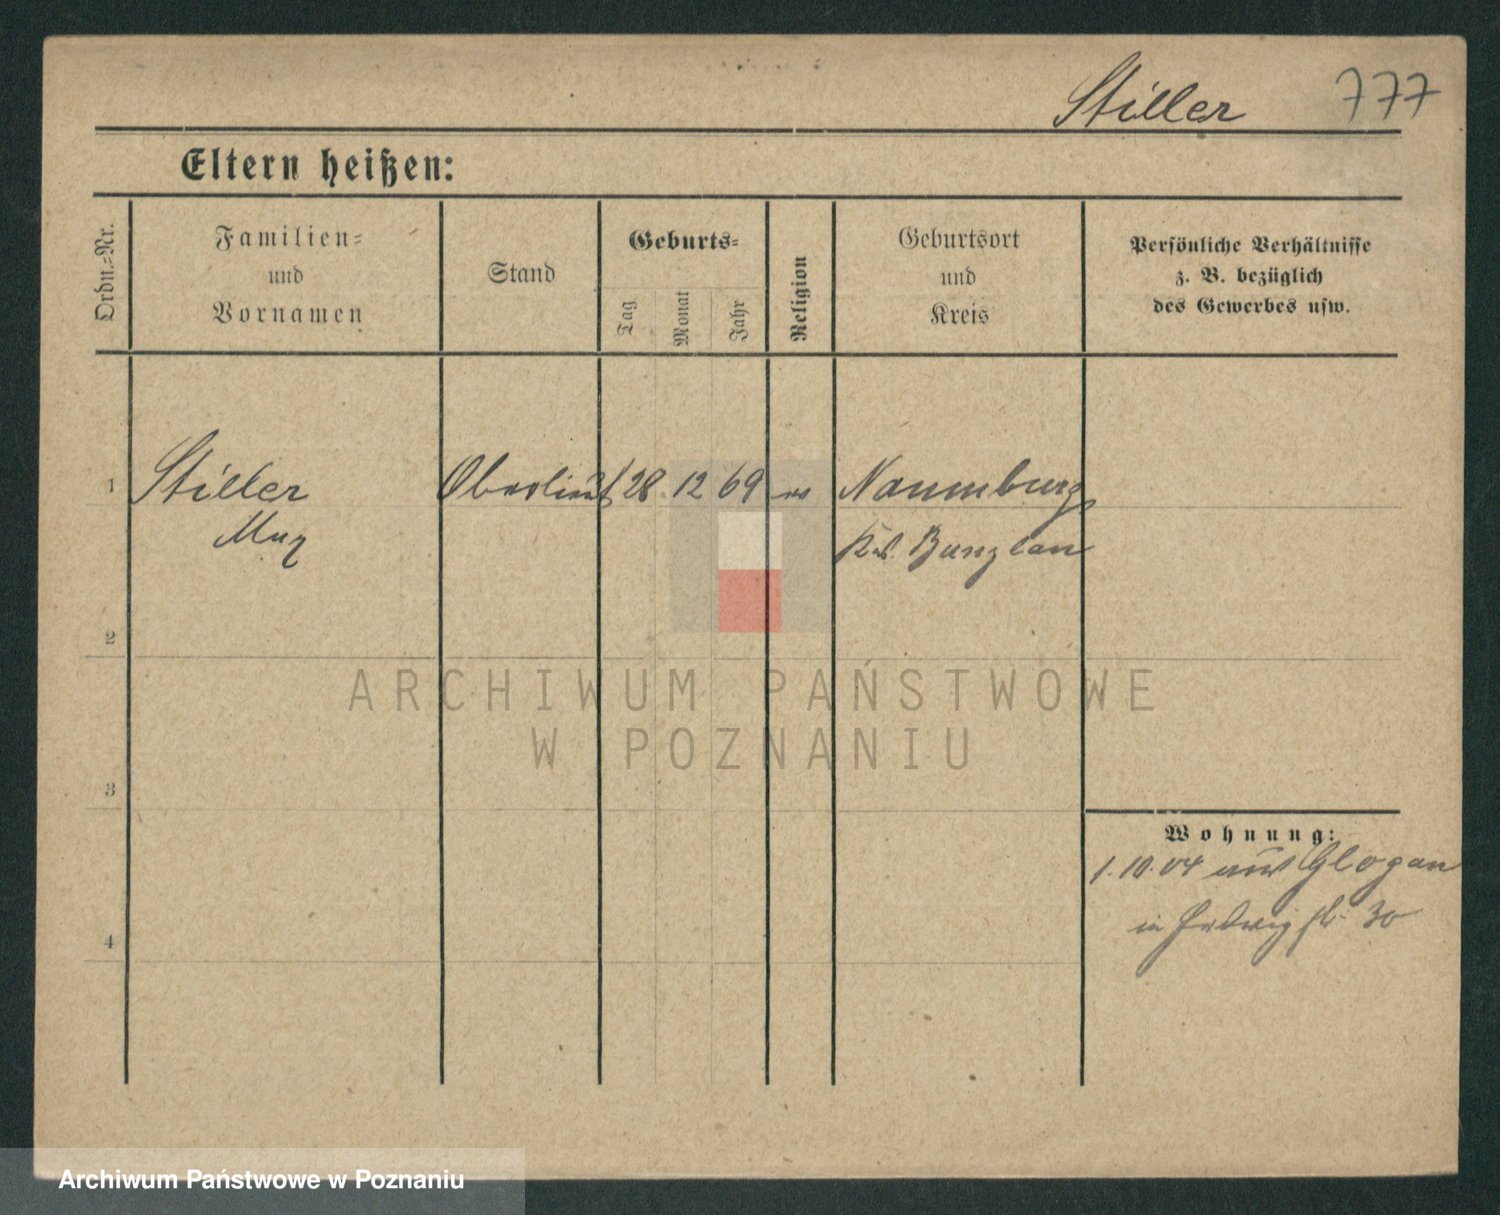 Stiller 777
Eltern heißen:
Ordn.-Nr.
Familien-
und
Vornamen
Stand
Geburts-
Tag
Monat
Jahr
Religion
Geburtsort
und
Kreis
Persönliche Verhältnisse
z. B. bezüglich
des Gewerbes usw.
1 Stiller Oberlieut 28 12 69 ev Naumburg
Max Krs. Bunzlau
2
3
4
Wohnung:
1.10.04 aus Glogau
in Hedwigstr 30
ARCHIWUM PAŃSTWOWE
W POZNANIU
Archiwum Państwowe w Poznaniu